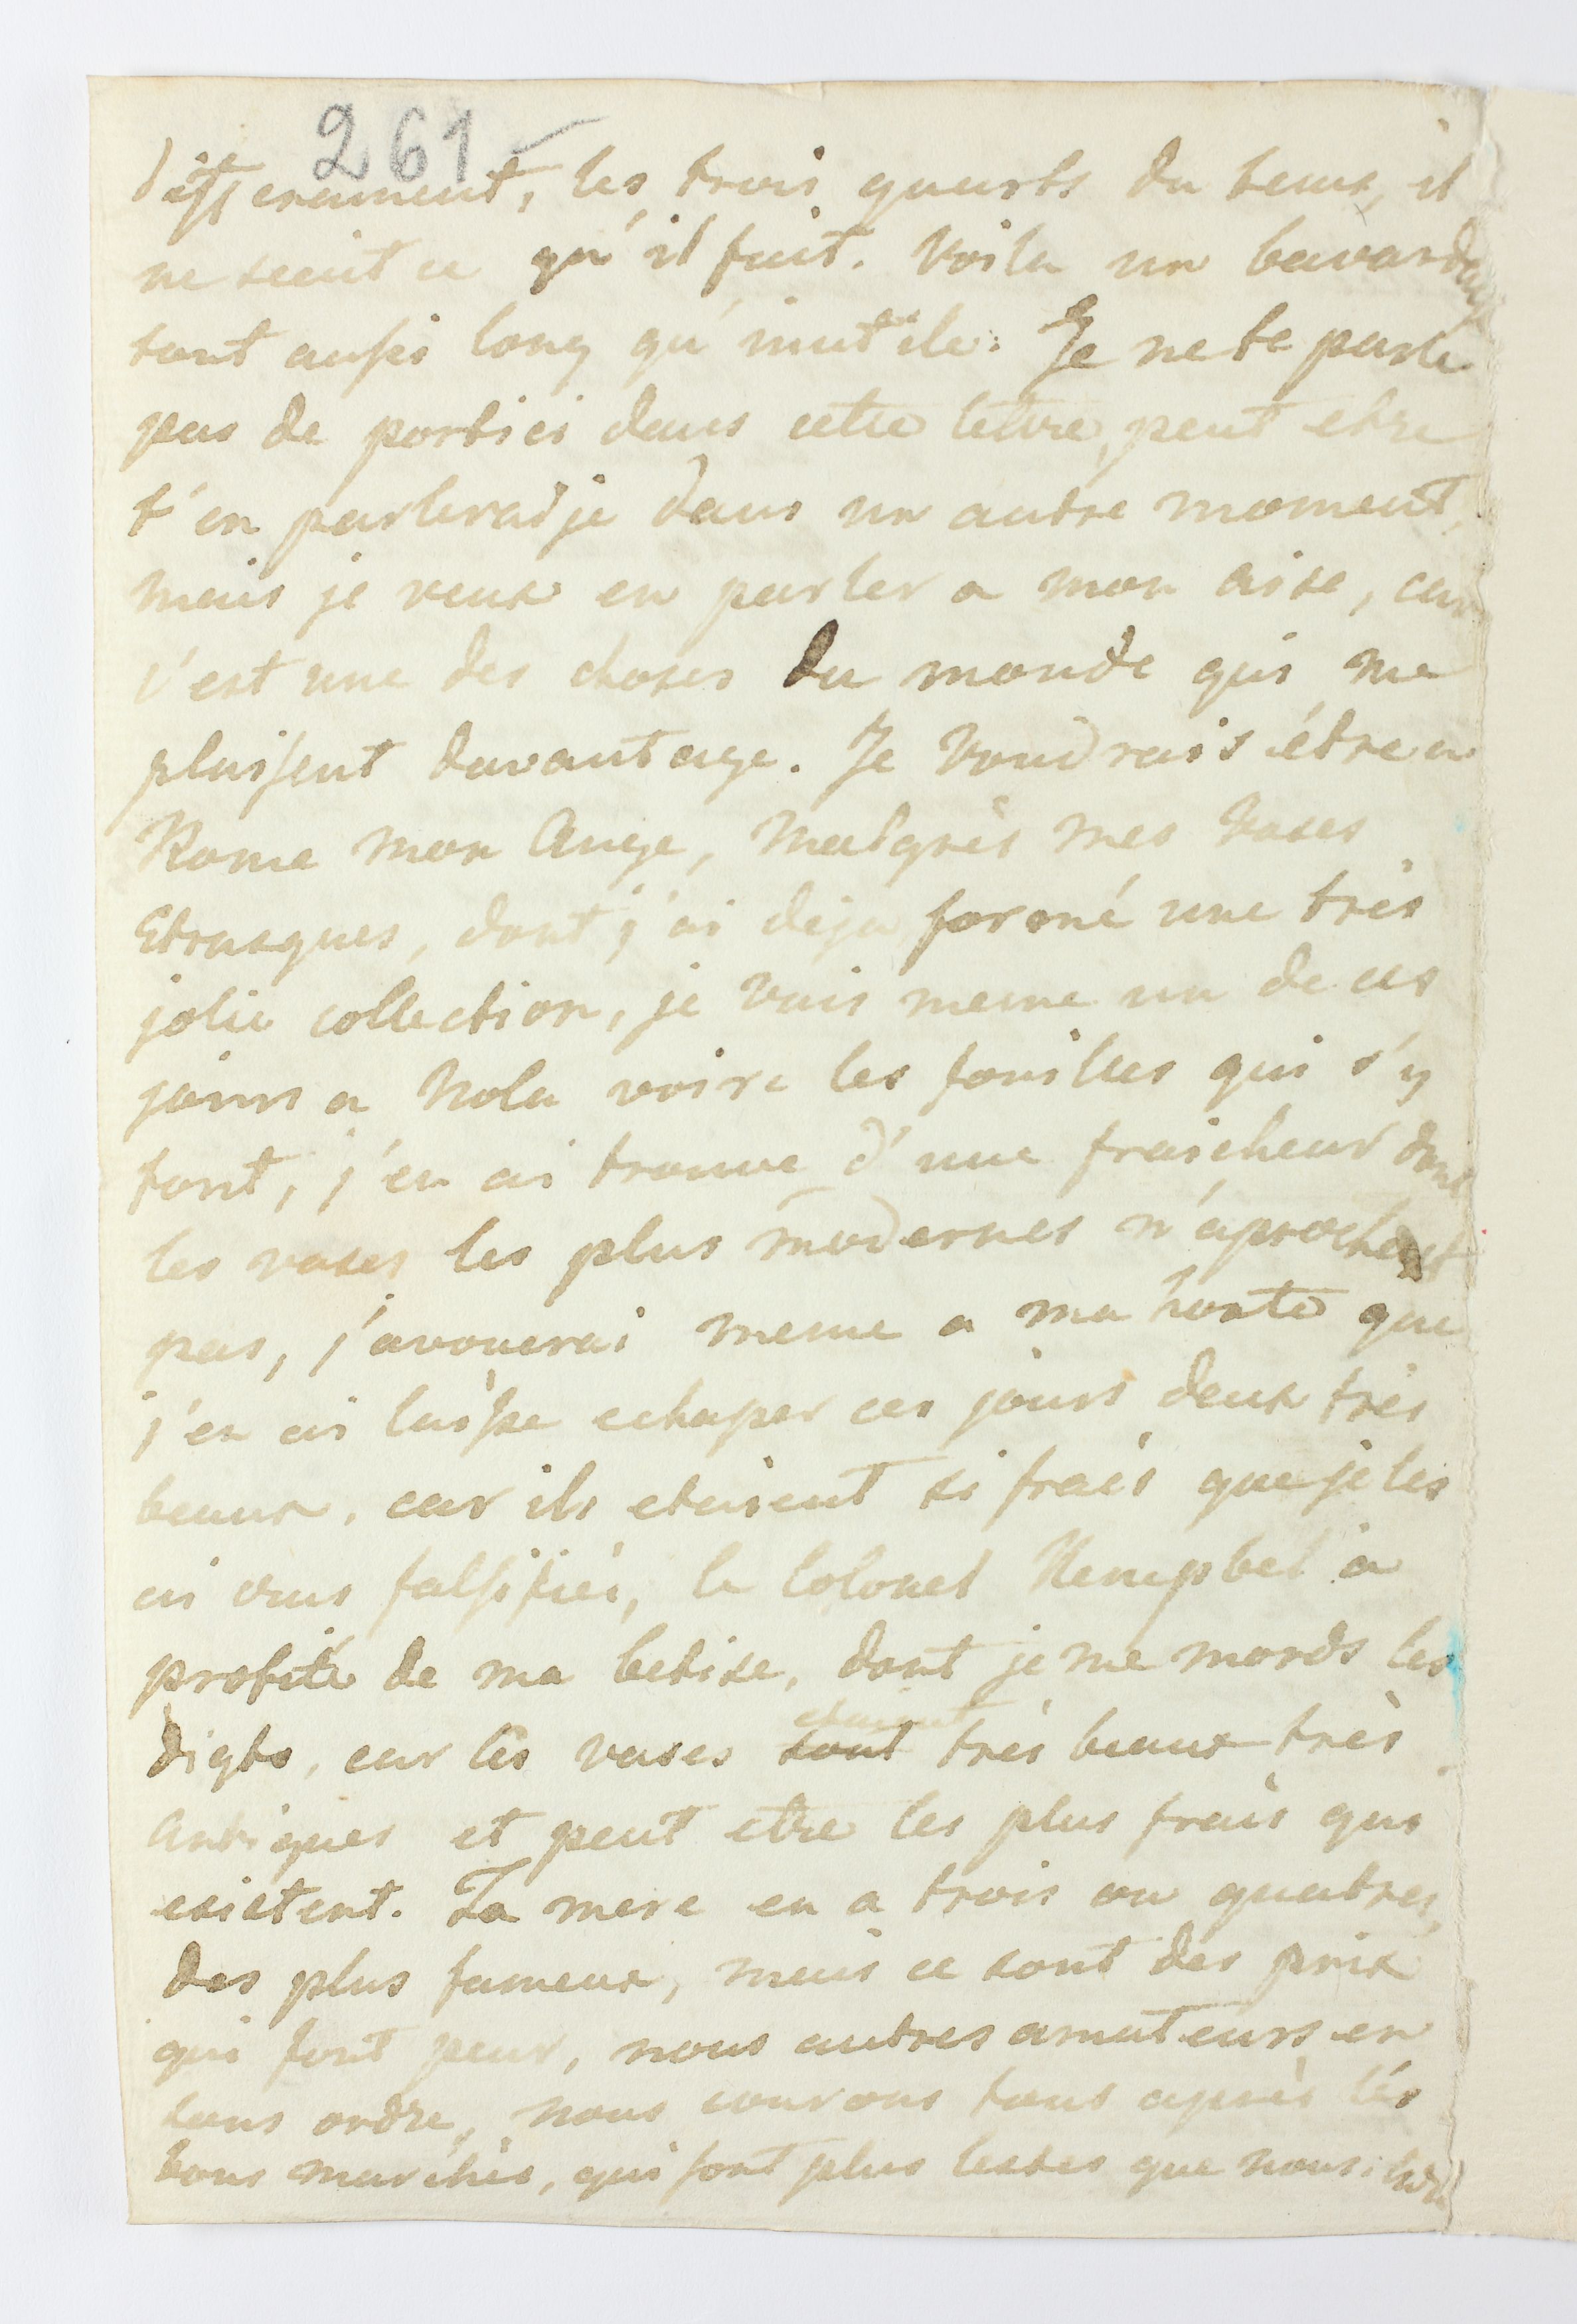 261
differement, les trois quarts du tems, il
ne scait ce qu'il fait. Voila un bavardage
tout aussi long qu'inutile. Je ne te parle
pas de portici dans cette lettre, peut etre
t'en parlerai je dans un autre moment,
mais je veux en parler a mon aise, car
c'est une des choses du monde qui me
plaisent davantage. Je voudrais être a
Rome mon Ange, malgrès mes vases
Etrusques, dont j'ai deja formé une très
jolie collection, je vais meme un de ces
jours a Nola voire les fouilles qui s'y
font, j'en ai trouve d'une fraicheur dont
les vases les plus modernes n'aprochent
pas, j'avouerai meme a ma honte que
j'en ai laisse echaper ces jours deux très
beaux, car ils etaient si frais que je les
ai crus falsifiés, le Colonel Kempbel a
profité de ma betise, dont je me mords les
digts, car les vases etaient très beaux très
antiques et peut etre les plus frais qui
existent. Ta mere en a trois ou quatres,
des plus fameux, mais ce sont des prix
qui font peur, nous autres amateurs en
sous ordre, nous courons tous après les
bons marchés, qui sont plus lestes que nous.